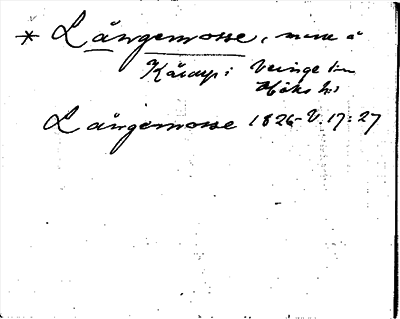 * Långemosse, mosse å
Kåarp i Veinge sn
Höks hd
Långemosse 1826-V.17:27